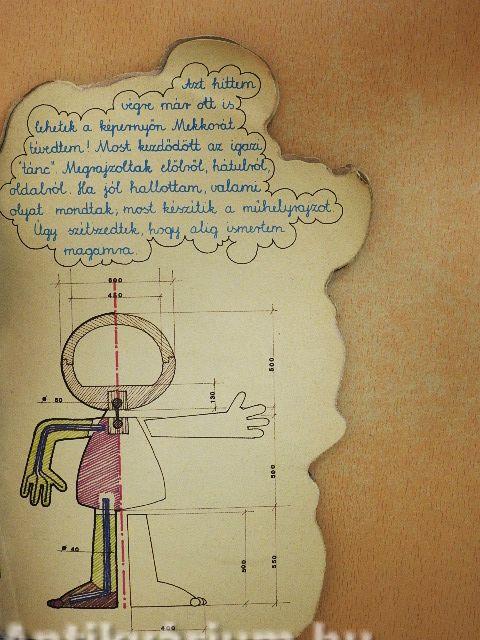 Azt hittem
végre már ott is
lehetek a képernyőn Mekkorát
tévedtem! Most kezdődött az igazi
"tánc". Megrajzoltak előlről, hátulról,
oldalról. Ha jól hallottam, valami
olyat mondtak, most készítik a műhelyrajzot.
Úgy szétszedtek, hogy alig ismertem
magamra.
600
450
500
130
ø 50
500
ø 40
500
550
400
Antikvarium.hu